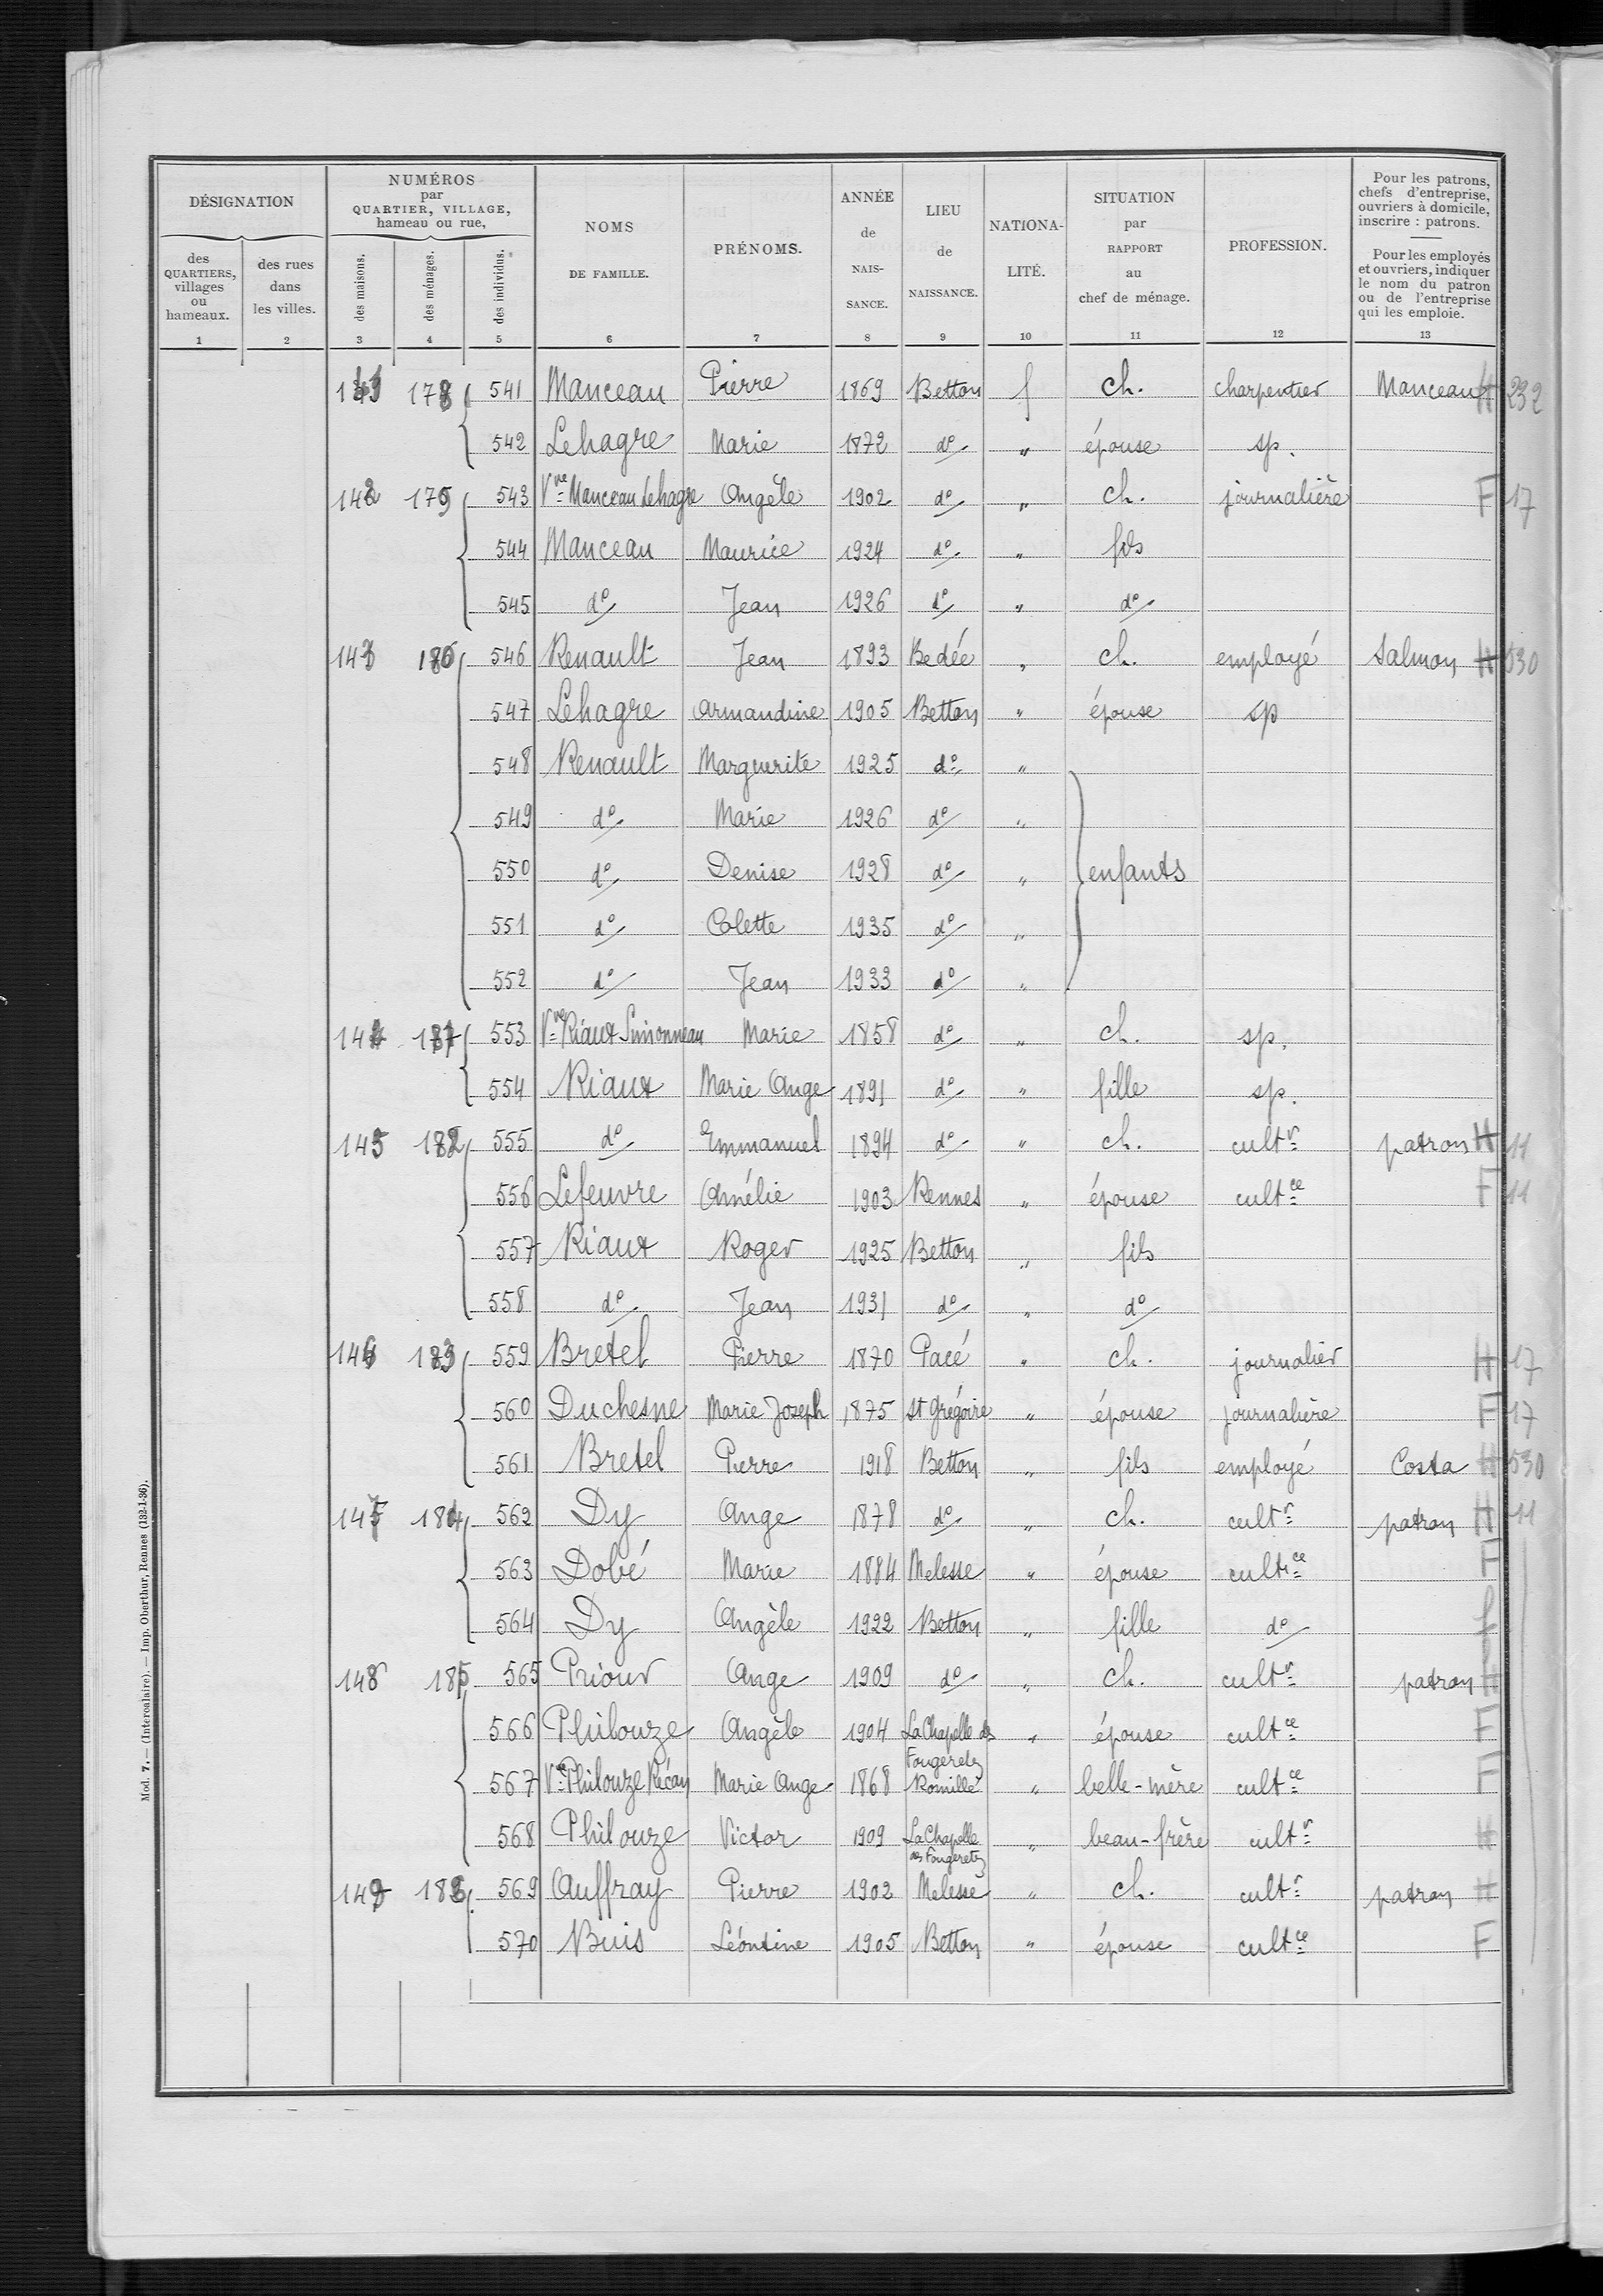 DÉSIGNATION
des QUARTIERS, villages ou hameaux.
des rues dans les villes.
NUMÉROS par QUARTIER, VILLAGE, hameau ou rue,
des maisons.
des ménages.
des individus.
NOMS DE FAMILLE.
PRÉNOMS.
ANNÉE de NAIS-SANCE.
LIEU de NAISSANCE.
NATIONA-LITÉ.
SITUATION par RAPPORT au chef de ménage.
PROFESSION.
Pour les patrons, chefs d'entreprise, ouvriers à domicile, inscrire : patrons.
Pour les employés et ouvriers, indiquer le nom du patron ou de l'entreprise qui les emploie.
1 2 3 4 5 6 7 8 9 10 11 12 13
178 541 Manceau Pierre 1869 Betton f ch. charpentier Manceau H 232
542 Lehagre Marie 1872 do " épouse sp.
142 179 543 Vve Manceau Lehagre Angèle 1902 do " ch. journalière F 17
544 Manceau Maurice 1924 do " fils
545 do Jean 1926 do " do
143 180 546 Renault Jean 1893 Bedée " ch. employé Salmon H 530
547 Lehagre Armandine 1905 Betton " épouse sp
548 Renault Marguerite 1925 do "
549 do Marie 1926 do "
550 do Denise 1928 do " enfants
551 do Colette 1935 do "
552 do Jean 1933 do "
144 181 553 Vve Riaux Simonneau Marie 1858 do " ch. sp.
554 Riaux Marie Ange 1891 do " fille sp.
145 182 555 do Emmanuel 1894 do " ch. cultr patron H 11
556 Lefeuvre Amélie 1903 Rennes " épouse cultce F 11
557 Riaux Roger 1925 Betton " fils
558 do Jean 1931 do " do
146 183 559 Bretel Pierre 1870 Pacé " ch. journalier H 17
560 Duchesne Marie Joseph 1875 St Grégoire " épouse journalière F 17
561 Bretel Pierre 1918 Betton " fils employé Costa H 530
147 184 562 Dy Ange 1878 do " ch. cultr patron H 11
563 Dobé Marie 1884 Melesse " épouse cultce F
564 Dy Angèle 1922 Betton " fille do f
148 185 565 Priour Ange 1909 do " ch. cultr patron H
566 Philouze Angèle 1904 La Chapelle des Fougeretz " épouse cultce F
567 Vve Philouze Récan Marie Ange 1868 Romillé " belle-mère cultce F
568 Philouze Victor 1909 La Chapelle des Fougeretz " beau-frère cultr H
149 186 569 Auffray Pierre 1902 Melesse " ch. cultr patron H
570 Buis Léontine 1905 Betton " épouse cultce F
Mod. 7. — (Intercalaire). — Imp. Oberthur, Rennes (132-1-36).